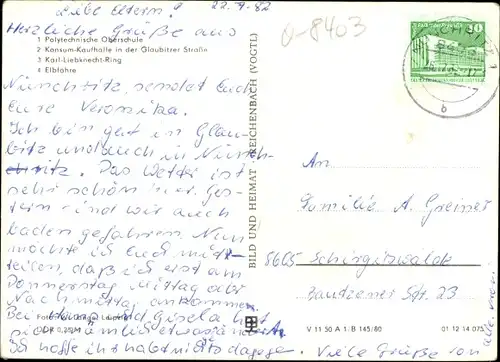 Liebe Eltern! 22.7.82
Herzliche Grüße aus
1 Polytechnische Oberschule
2 Konsum-Kaufhalle in der Glaubitzer Straße
3 Karl-Liebknecht-Ring
4 Elbfähre
Nünchritz, sendet Euch
Eure Veronika.
Ich bin gut in Glau-
bitz und auch in Nünch-
ritz. Das Wetter ist
sehr schön hier. Ges-
tern sind wir auch
baden gefahren. Nun
möchte ich Euch mit-
teilen, daß ich erst am
Donnerstag Mittag oder
Nachmittag ankomme.
Bei und Gisela hat
sich
Ich hoffe ihr habt nichts dagegen.
Viele Grüße von
O-8403
20
b
BILD UND HEIMAT REICHENBACH (VOGTL)
An
Familie A. Greiner
8605 Schirgiswalde
Bautzener Str. 23
V 11 50 A 1 B 145/80
01 12 14 075